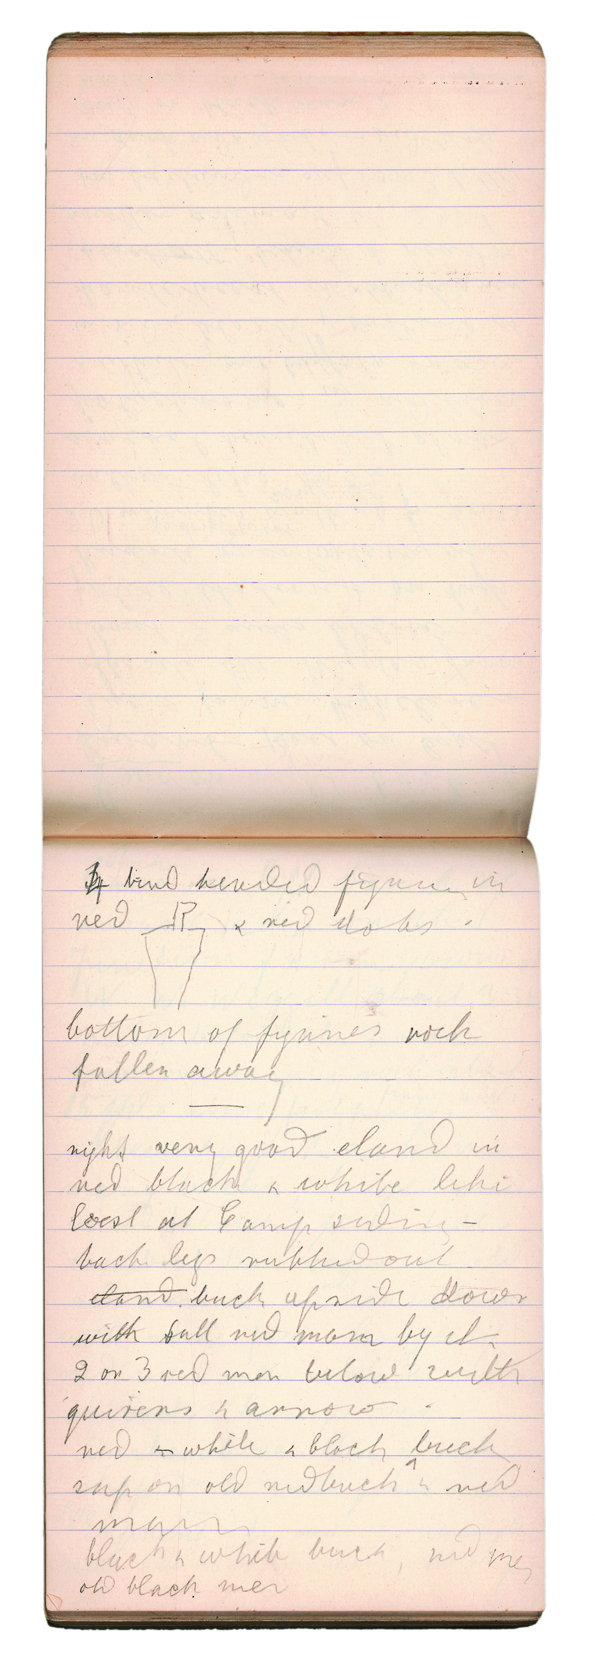 4 bird headed figures in
red & red dots.
bottom of figures rock
fallen away
right very good eland in
red black & white like
best at Camp siding -
back legs rubbed out
eland buck upside down
with tall red man by it
2 or 3 red men below with
quivers & arrows.
red & white & black buck
sup on old red buck & red
man
black & white buck, red men
old black men